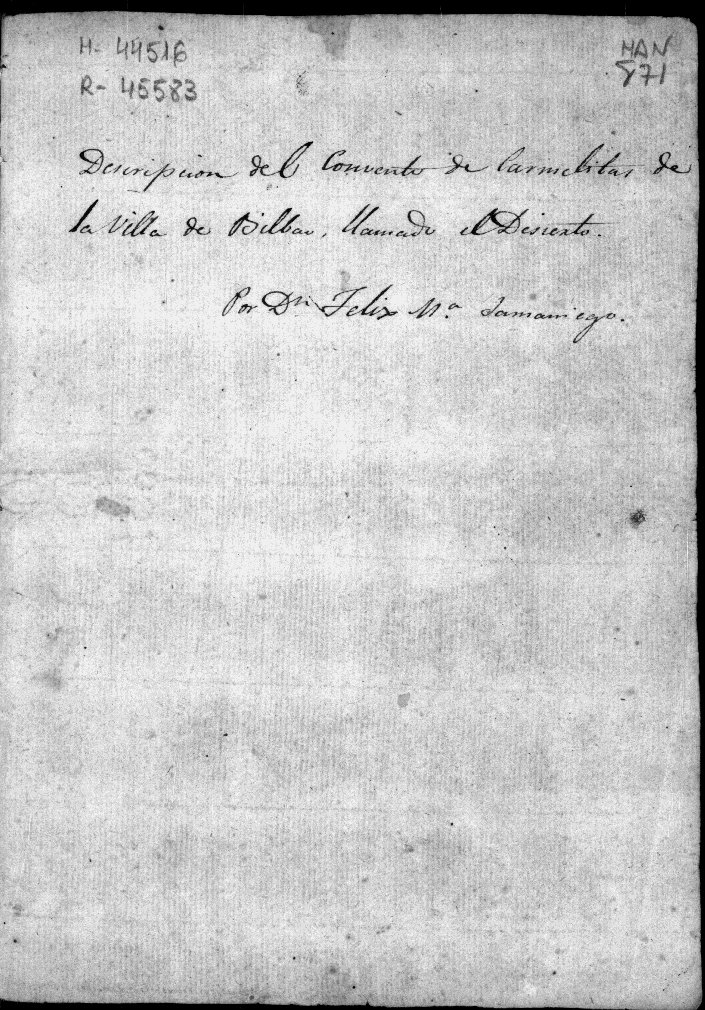 H- 44516
R- 45583
MAN
871
Descripcion del Convento de Carmelitas de
la Villa de Bilbao, llamado el Desierto.
Por Dn Felix Mª Samaniego.